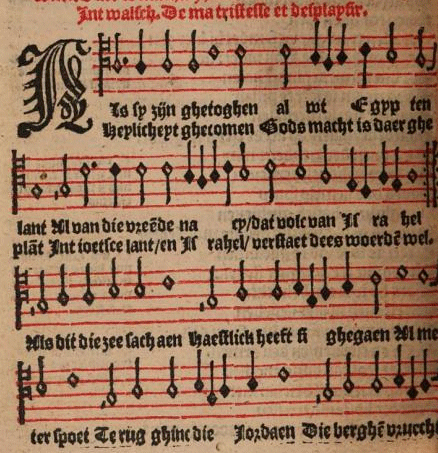 Int walsch. De ma tristesse et desplaysir.
Als sy zijn ghetoghen al wt Egyp ten
Heylicheyt ghecomen Gods macht is daer ghe
lant Al van die vreēde na cy/dat volc van Is ra hel
plāt Int ioetsce lant/en Is rahel/ verstaet dees woerdē wel.
Als dit die zee sach aen Haestlick heeft si ghegaen Al me
ter spoet Te rug ghinc die Jordaen Die berghē vruecht